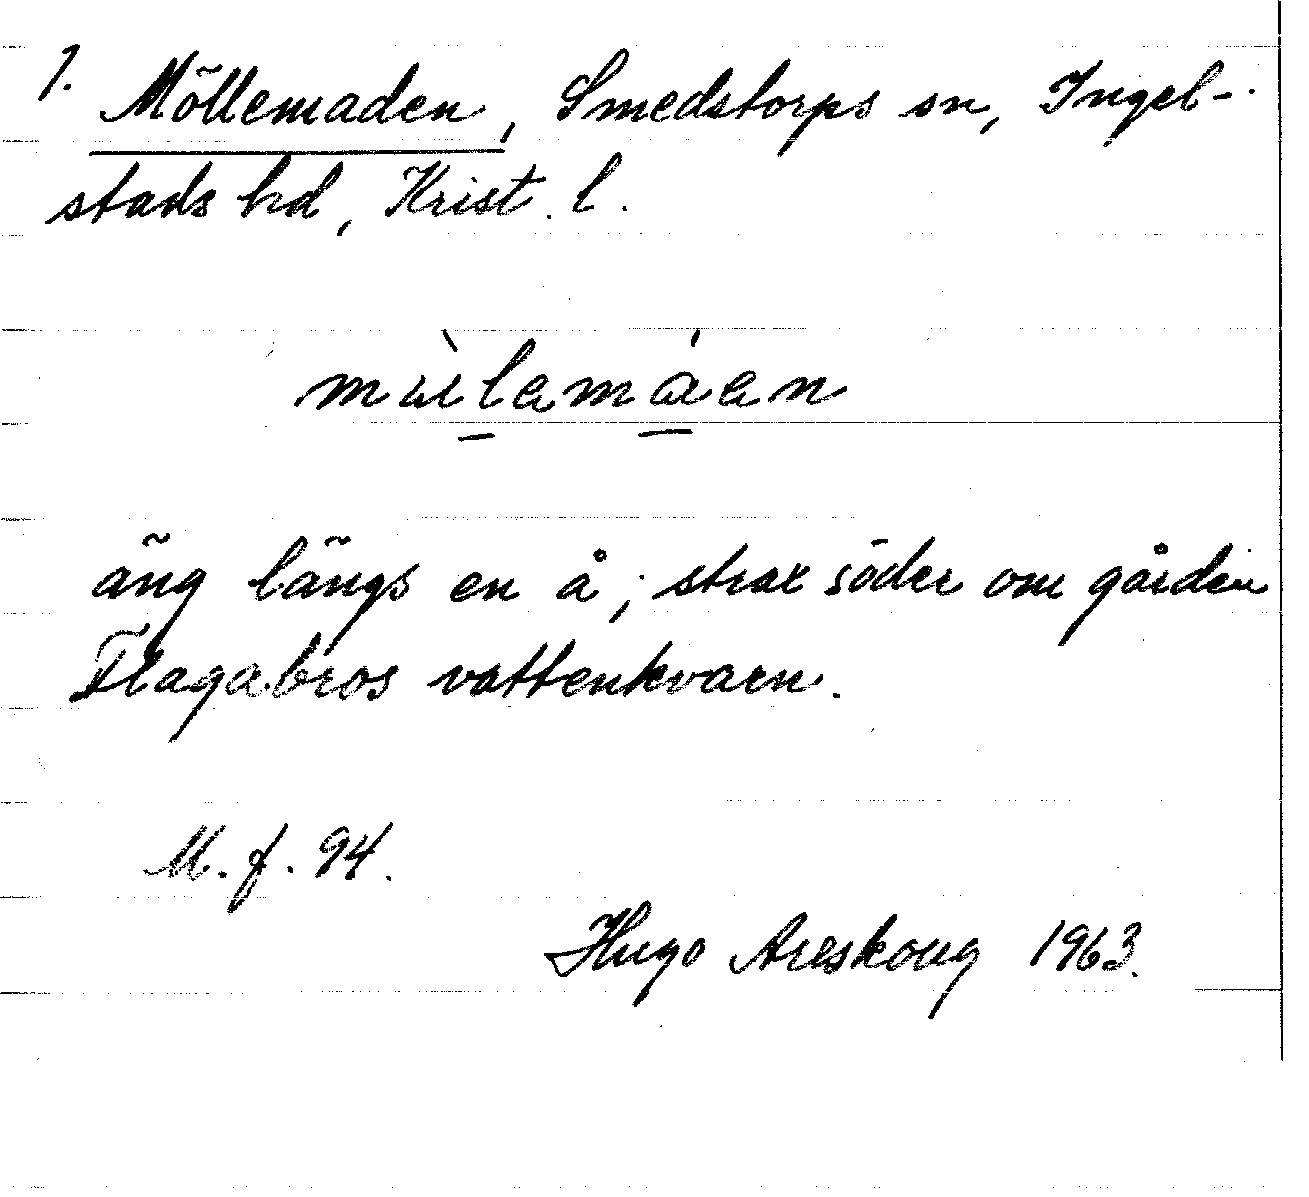 1. Möllemaden, Smedstorps sn, Ingel-
stads hd, Krist. l.
mùlamáen
äng längs en å; strax söder om gården
Flagabros vattenkvarn.
M.f. 94.
Hugo Areskoug 1963.